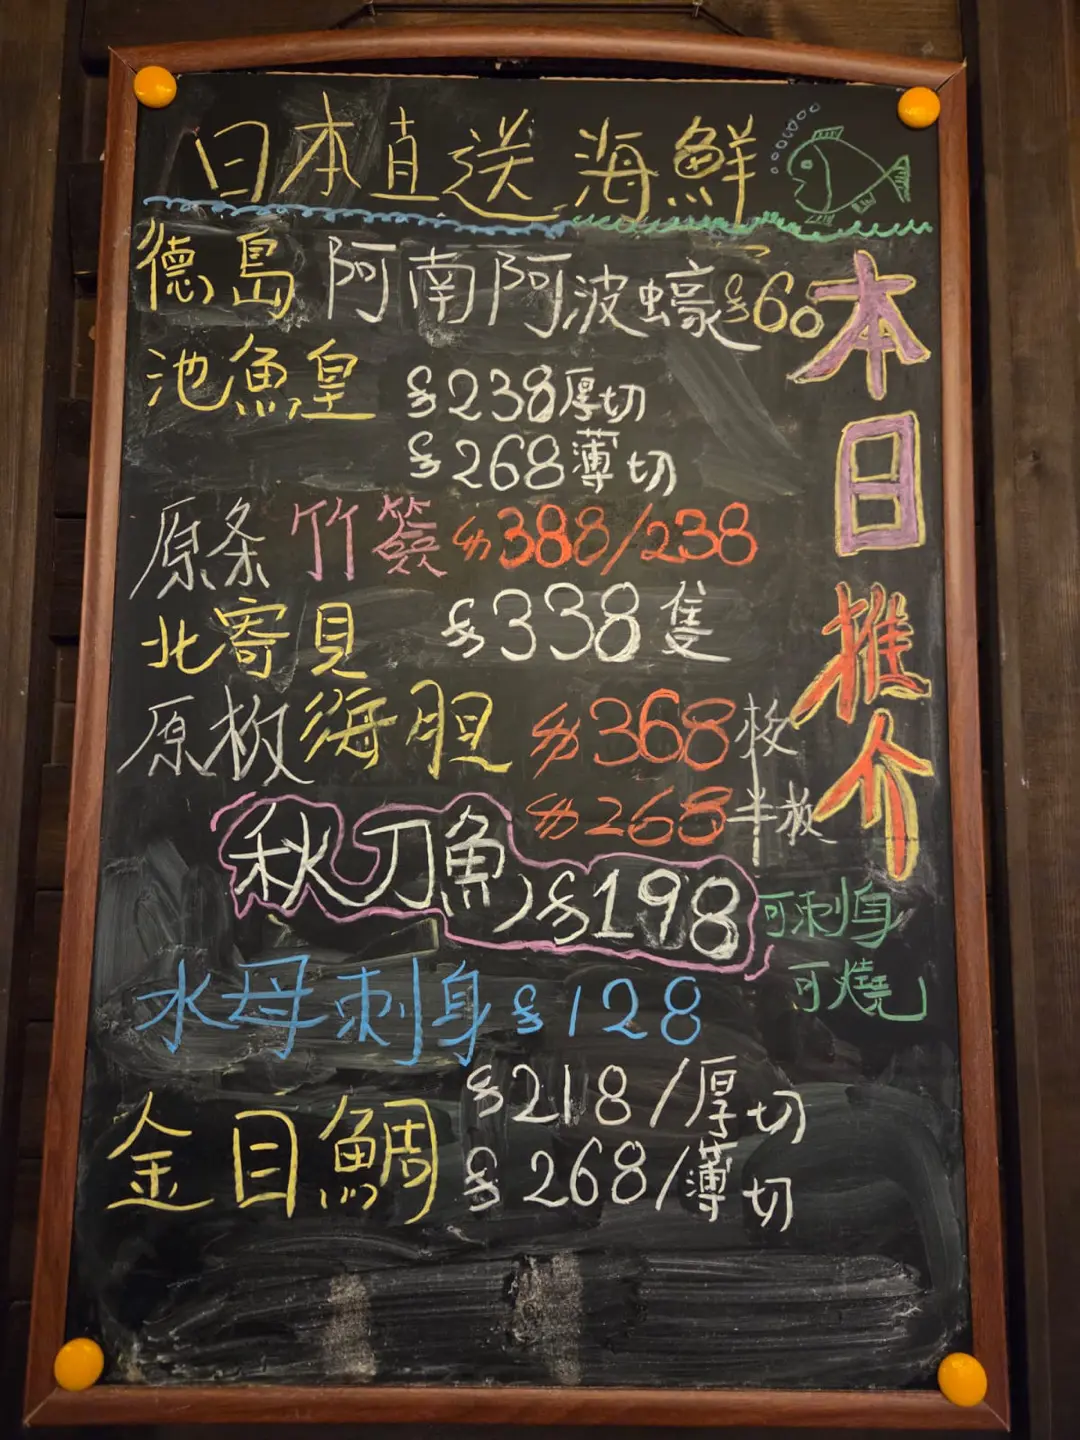 日本直送海鮮
本日推介
德島阿南阿波蠔$60
池魚皇 $238厚切
$268薄切
原条竹簽$388/238
北寄貝 $338隻
原板海胆 $368枚
$268半枚
秋刀魚$198
可刺身
可燒
水母刺身$128
金目鯛 $218/厚切
$268/薄切